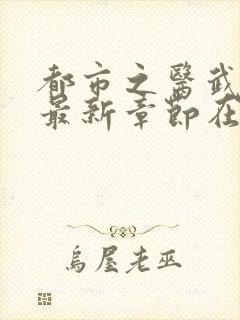 都市之醫武
最新章節在
烏屋老巫